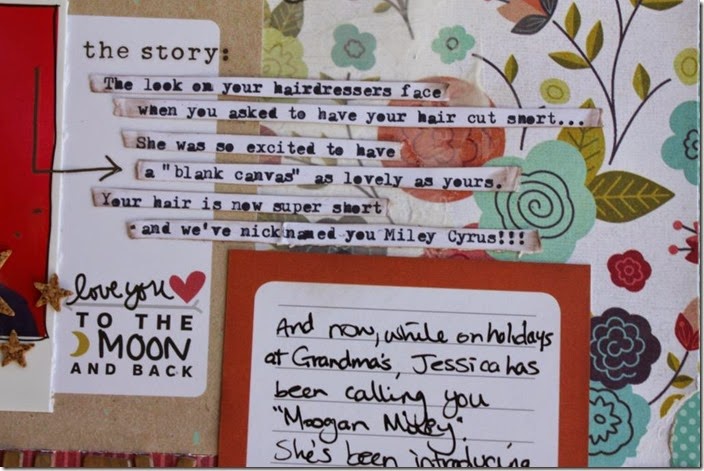 the story:
The look on your hairdressers face
when you asked to have your hair cut short...
She was so excited to have
a "blank canvas" as lovely as yours.
Your hair is now super short
and we've nicknamed you Miley Cyrus!!!
love you
TO THE
MOON
AND BACK
And now, while on holidays
at Grandma's, Jessica has
been calling you
"Moogan Miley".
She's been introducing